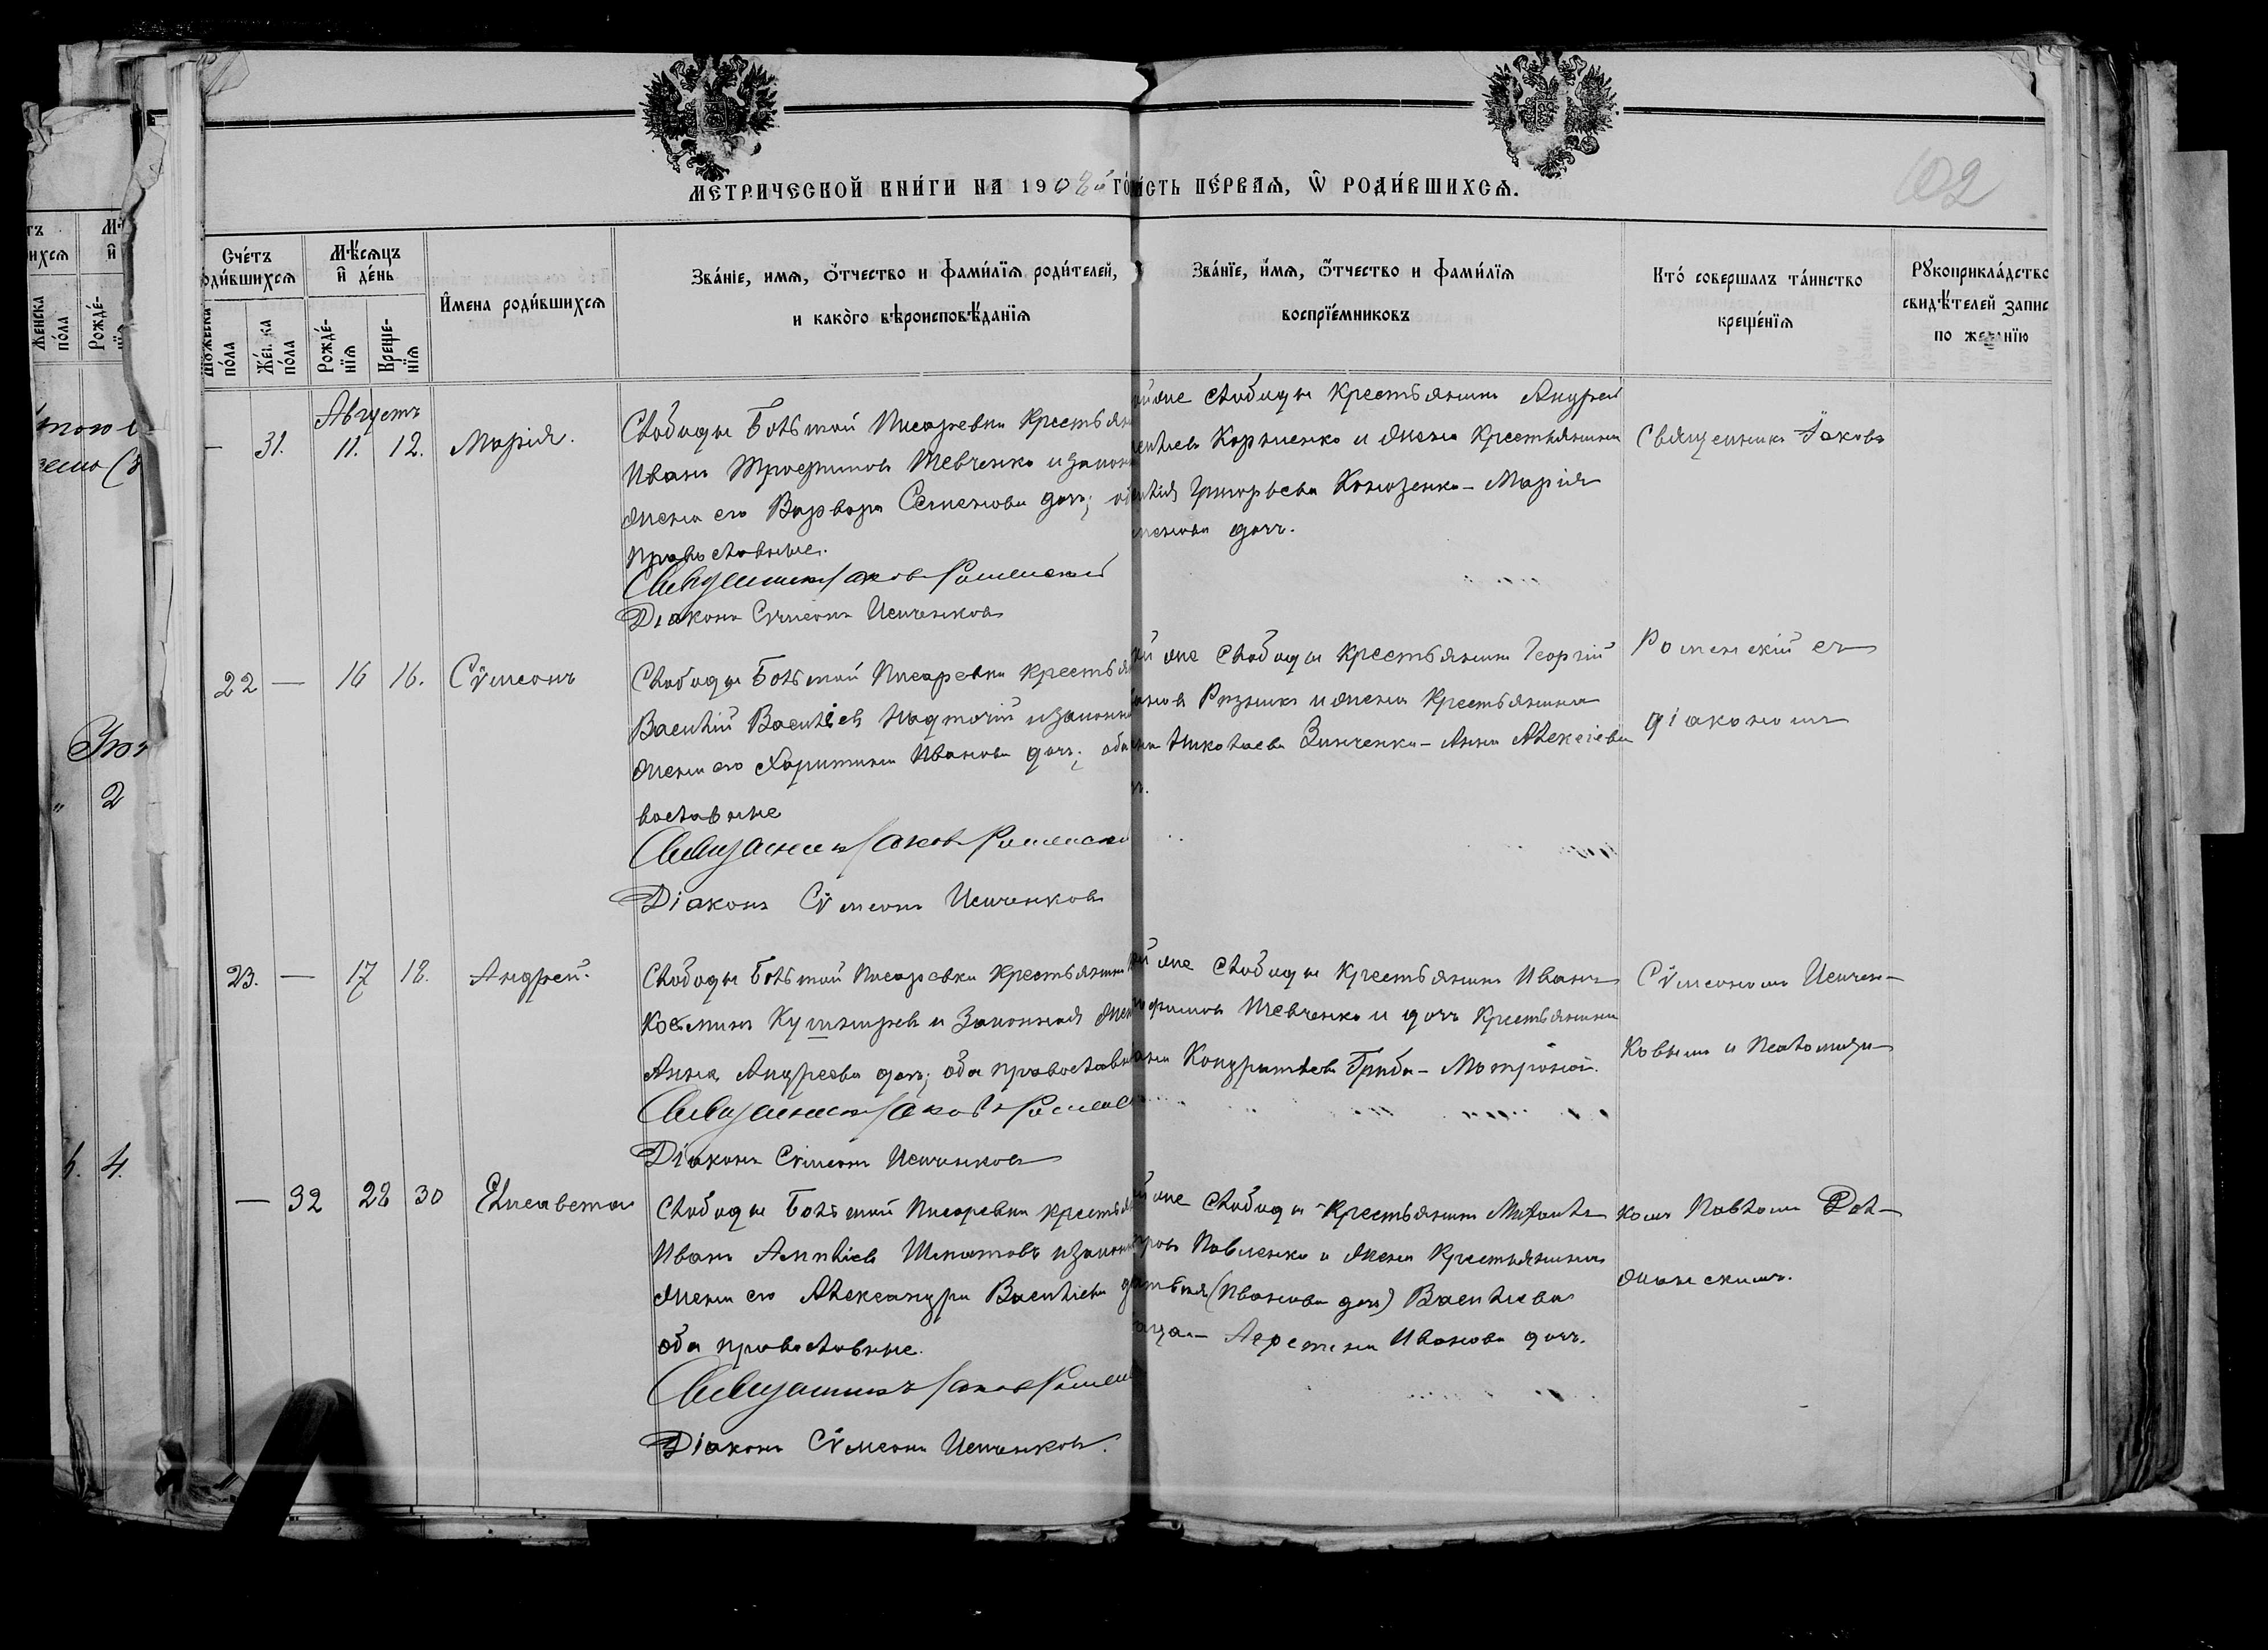 102
МЕТРИЧЕСКОЙ КНИ́ГИ НА 1908 ГО
ИСТЬ ПЕ́РВАѦ, Ѿ РОДИ́ВШИХСѦ.
Сче́тъ
роди́вшихсѧ
Мѣ́сѧцъ
и де́нь
Имена роди́вшихсѧ
Зва́нїе, имѧ, ѻ́тчество и фами́лїѧ роди́телей,
и како́го вѣроисповѣ́данїѧ
Зва́нїе, и́мѧ, ѻ́тчество и фами́лїѧ
воспрїе́мниковъ
Кто́ соверша́лъ та́инство
креще́нїѧ
Рукоприкла́дство
свидѣ́телей запис
по жела́нїю
Же́нска
по́ла
Рожде́-
нїѧ
Креще-
нїѧ
Августъ
— 31. 11. 12. Марія.
Слободы Большой Писаревки крестьян
Иванъ Трофимовъ Шевченко и закон
жена его Варвара Семенова дочь;
православные.
Священникъ Іаковъ Роменскій
Діаконъ Сѵмеонъ Исиченковъ
же слободы крестьянинъ Андрей
Корніенко и жена крестьянина
Григорьева Конозенко – Марія
дочь.
Священникъ Іаковъ
22 — 16 16. Сѵмеонъ
Слободы Большой Писаревки крестья
Василій Васильевъ Надточій и законн
жена его Харитина Иванова дочь; оба
вославные
Священникъ Іаковъ Роменскі
Діаконъ Сѵмеонъ Исиченковъ
же слободы крестьянинъ Георгій
Резникъ и жена крестьянина
Николаева Зинченко – Анна Алексіева
Роменскій съ
діакономъ
23. — 17 18. Андрей.
Слободы Большой Писаревки крестьянинъ
Косминъ Кушнаревъ и законная жен
Анна Андреева дочь; оба православн
Священникъ Іаковъ Роменс
Діаконъ Сѵмеонъ Исиченковъ
же слободы крестьянинъ Иванъ
Шевченко и дочь крестьянина
Кондратьева Гриба – Матрона.
Сѵмеономъ Исичен-
ковымъ и псаломщи-
— 32 28 30 Елисавета
Слободы Большой Писаревки крестья
Иванъ Шматовъ и законн
жена его Александра Васильева
оба православные.
Священникъ Іаковъ Ромен
Діаконъ Сѵмеонъ Исиченковъ.
же слободы крестьянинъ Михаилъ
Павленко и жена крестьянина
(Иванова дочь) Васильева
Иванова дочь.
комъ Павломъ Дол-
жанскимъ.
2
4.